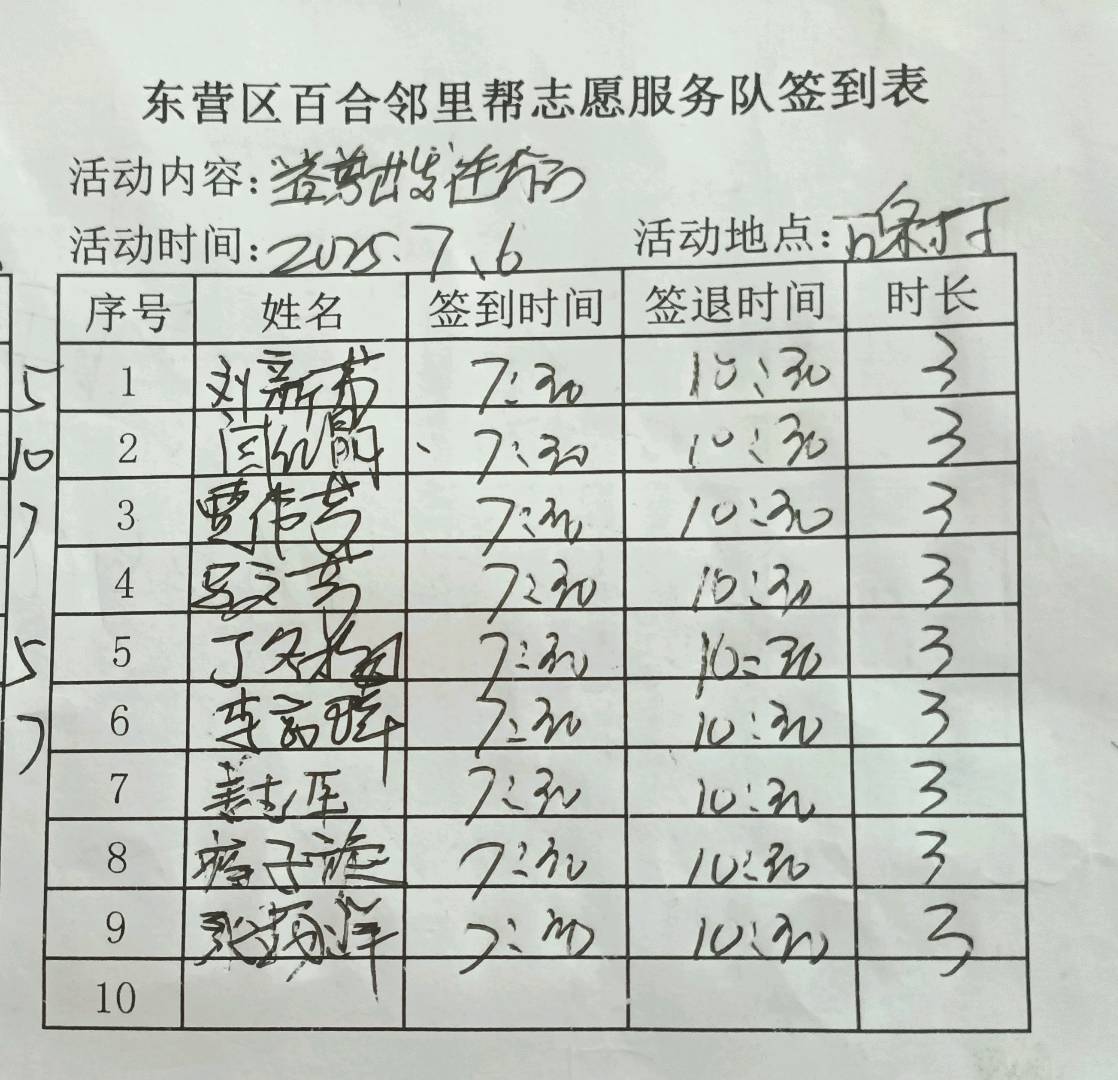 东营区百合邻里帮志愿服务队签到表
活动内容:
活动时间: 2025.7.6 活动地点:
序号 姓名 签到时间 签退时间 时长
5 1 刘新芳 7:30 10:30 3
10 2 闫 7:30 10:30 3
7 3 贾伟芳 7:30 10:30 3
4 芳 7:30 10:30 3
5 5 丁 7:30 10:30 3
7 6 李 7:30 10:30 3
7 7:30 10:30 3
8 子 7:30 10:30 3
9 洋 7:30 10:30 3
10